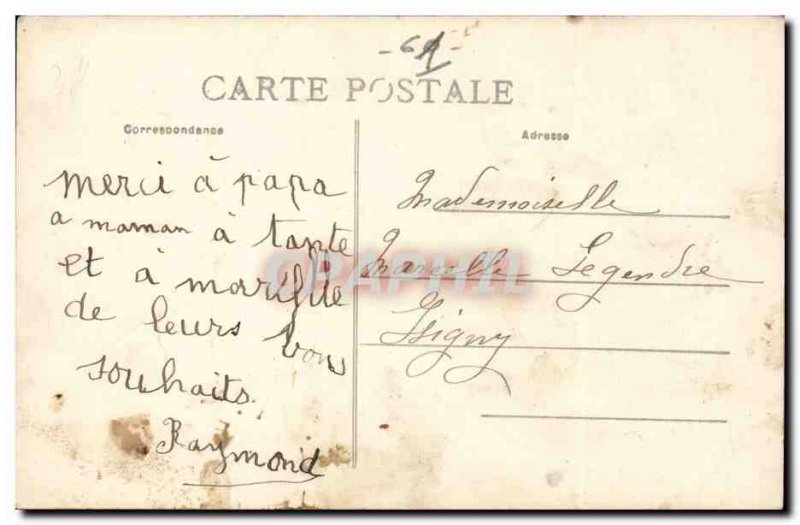 - 61 -
CARTE POSTALE
Correspondance
Adresse
merci à papa
a maman à tante
et à
de leurs bons
souhaits.
Raymond
Mademoiselle
Legendre
Isigny
CPAPHIL